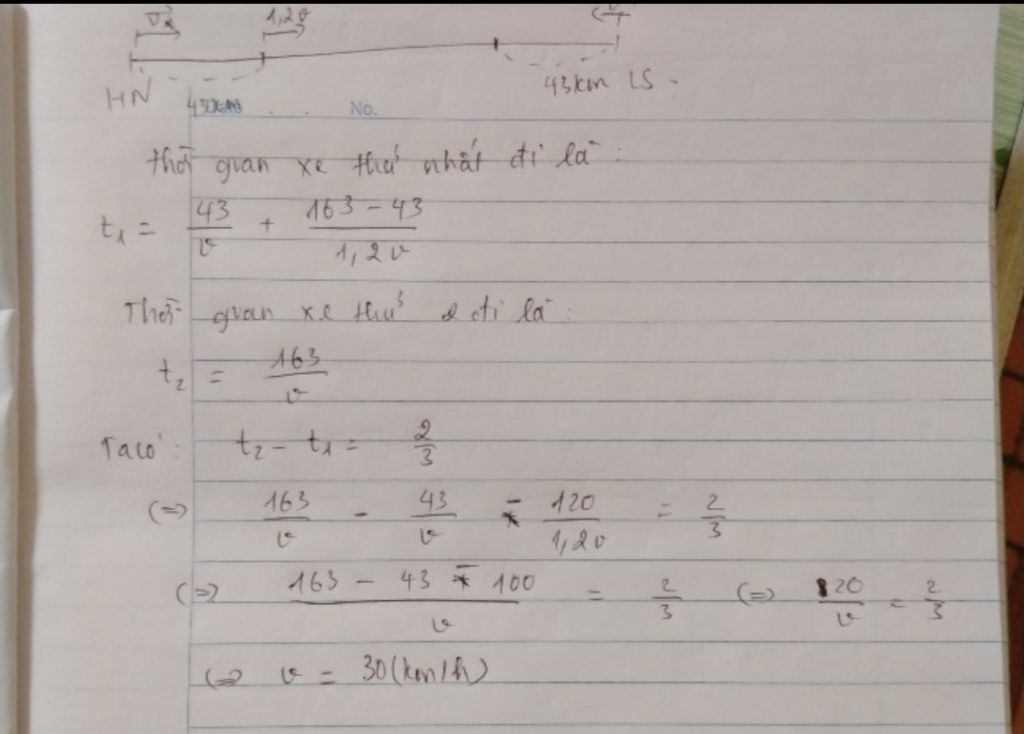 v 1,2v
43km LS.
HN 43km No.
Thời gian xe thứ nhất đi là:
t₁ = 43/v + (163 - 43)/1,2v
Thời gian xe thứ 2 đi là:
t₂ = 163/v
Ta có: t₂ - t₁ = 2/3
(=) 163/v - 43/v - 120/1,2v = 2/3
(=) (163 - 43 - 100)/v = 2/3 (=) 20/v = 2/3
(=) v = 30 (km/h)